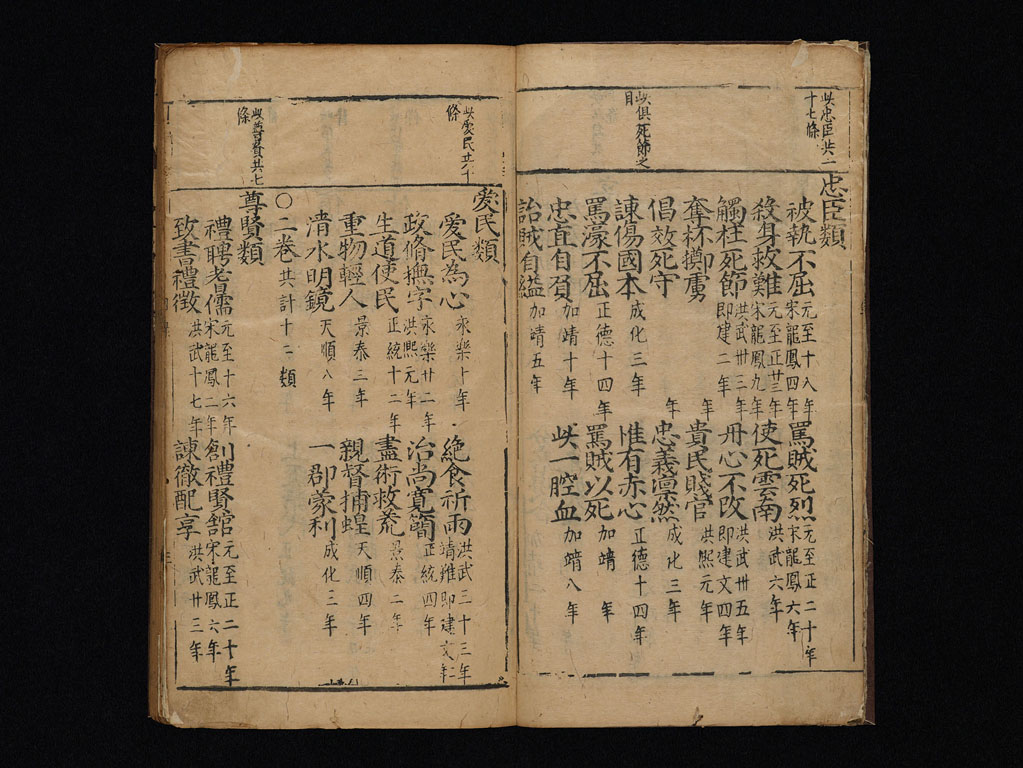 此忠臣共二
十七條
此俱死節之
目
忠臣類
被執不屈 元至十八年 宋龍鳳四年 罵賊死烈 元至正二十年 宋龍鳳六年
殺身救難 元至正廿三年 宋龍鳳九年 使死雲南 洪武六年
觸柱死節 洪武卅二年 即建二年 丹心不改 洪武卅五年 即建文四年
奪杯擲虜 年 貴民賤官 洪熙元年
倡效死守 年 忠義凛然 成化三年
諫傷國本 成化三年 惟有赤心 正德十四年
罵濠不屈 正德十四年 罵賊以死 加靖 年
忠直自負 加靖十年 此一腔血 加靖八年
詒賊自縊 加靖五年
此愛民共十
條
此尊賢共七
條
愛民類
愛民為心 永樂十年 絶食祈雨 洪武三十三年 靖難即建文二年
政脩撫字 永樂廿二年 洪熙元年 治尚寬簡 正統四年
生道使民 正統十二年 盡術救荒 景泰二年
重物輕人 景泰三年 親督捕蝗 天順四年
清水明鏡 天順八年 一郡蒙利 成化三年
○二卷 共計十二類
尊賢類
禮聘老儒 元至十六年 宋龍鳳二年 創禮賢舘 元至正二十年 宋龍鳳六年
致書禮徴 洪武十七年 諫徹配享 洪武廿三年